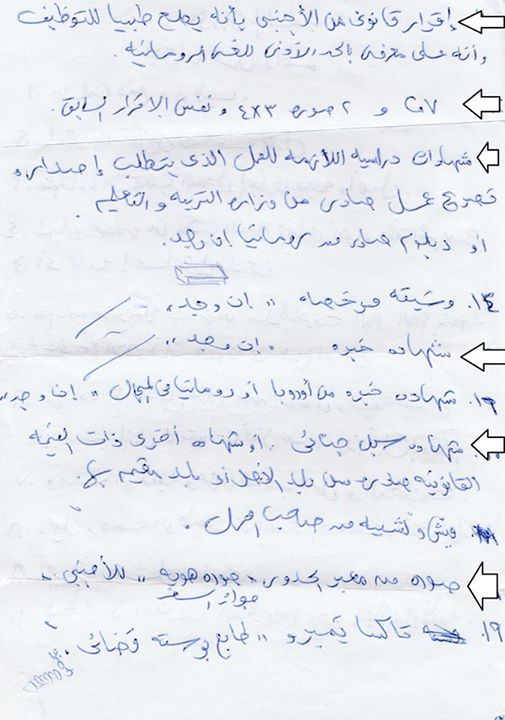 إقرار قانوني من الأجنبي بأنه يصلح طبيا للتوظيف
وأنه على معرفه بالحد الأدنى للغه الرومانيه.
و ٢ صوره ٤x٣ و نفس الاقرار السابق.
شهادات دراسيه اللازمه للعمل الذي يتطلب إصداره
تصريح عمل صادره من وزاره التربيه و التعليم.
او دبلوم صادر من رومانيا إن وجد.
١٤. وثيقه " ان وجد "
شهاده خبره " إن وجد "
١٦. شهاده خبره من أوروبا او رومانيا في المجال " إن وجد "
شهاده سجل جنائي. او شهاده أخرى ذات القيمه
القانونيه صادره من بلد الأصل أو بلد مقيم بها.
من صاحب العمل.
صوره من معبر الحدود " للأجنبي.
جواز السفر
١٩. تاكسا تيمبرو " طابع بوسته قضائي "